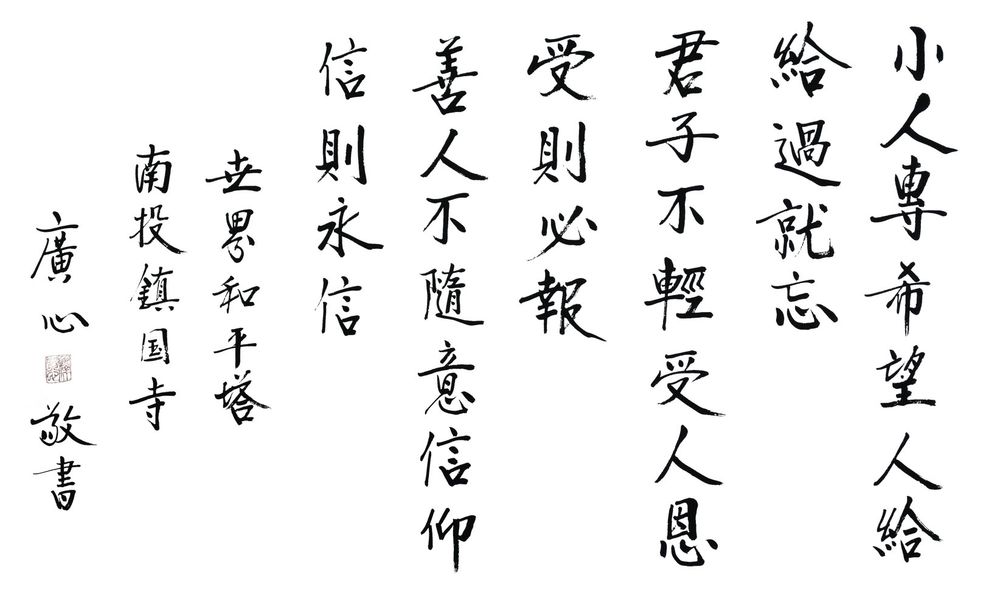 小人專希望人給
給過就忘
君子不輕受人恩
受則必報
善人不隨意信仰
信則永信
世界和平塔
南投鎮国寺
廣心
敬書